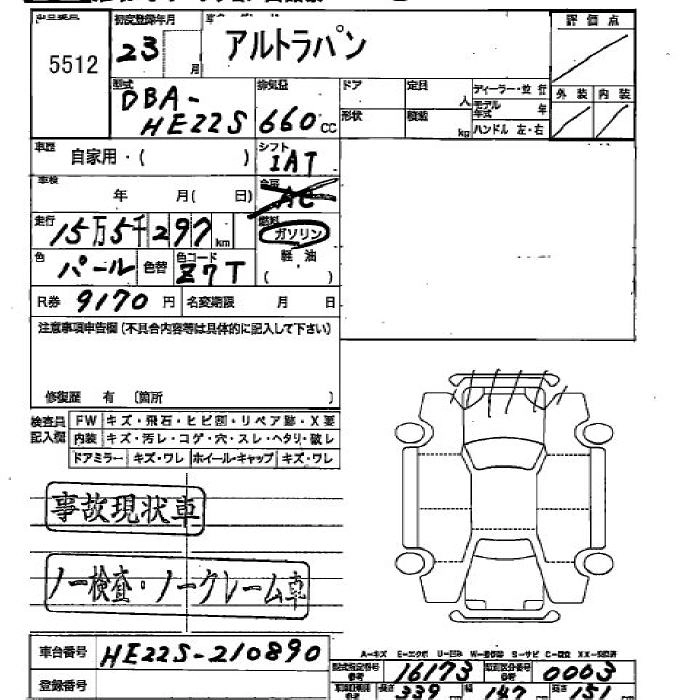 初度登録年月
5512
23 月
アルトラパン
評価点
型式
DBA-
HE22S
排気量
660 cc
ドア
定員
人
ディーラー・並行
モデル年式 年
外装 内装
形状
積載
kg
ハンドル 左・右
車歴
自家用・( )
シフト
IAT
車検
年 月( 日)
AC
走行
15万5千297 km
燃料
ガソリン
軽油
( )
色
パール
色替
色コード
Z7T
R券 9170 円
名変期限 月 日
注意事項申告欄(不具合内容等は具体的に記入して下さい)
修復歴 有 〔箇所 〕
検査員
記入欄
FW キズ・飛石・ヒビ割・リペア跡・X要
内装 キズ・汚レ・コゲ・穴・スレ・ヘタリ・破レ
ドアミラー キズ・ワレ ホイール・キャップ キズ・ワレ
事故現状車
ノー検査・ノークレーム車
車台番号 HE22S-210890
A-キズ E-エクボ U-凹み
型式指定番号 16173
類別区分番号 0003
登録番号
長さ 339
幅 147
高さ 151